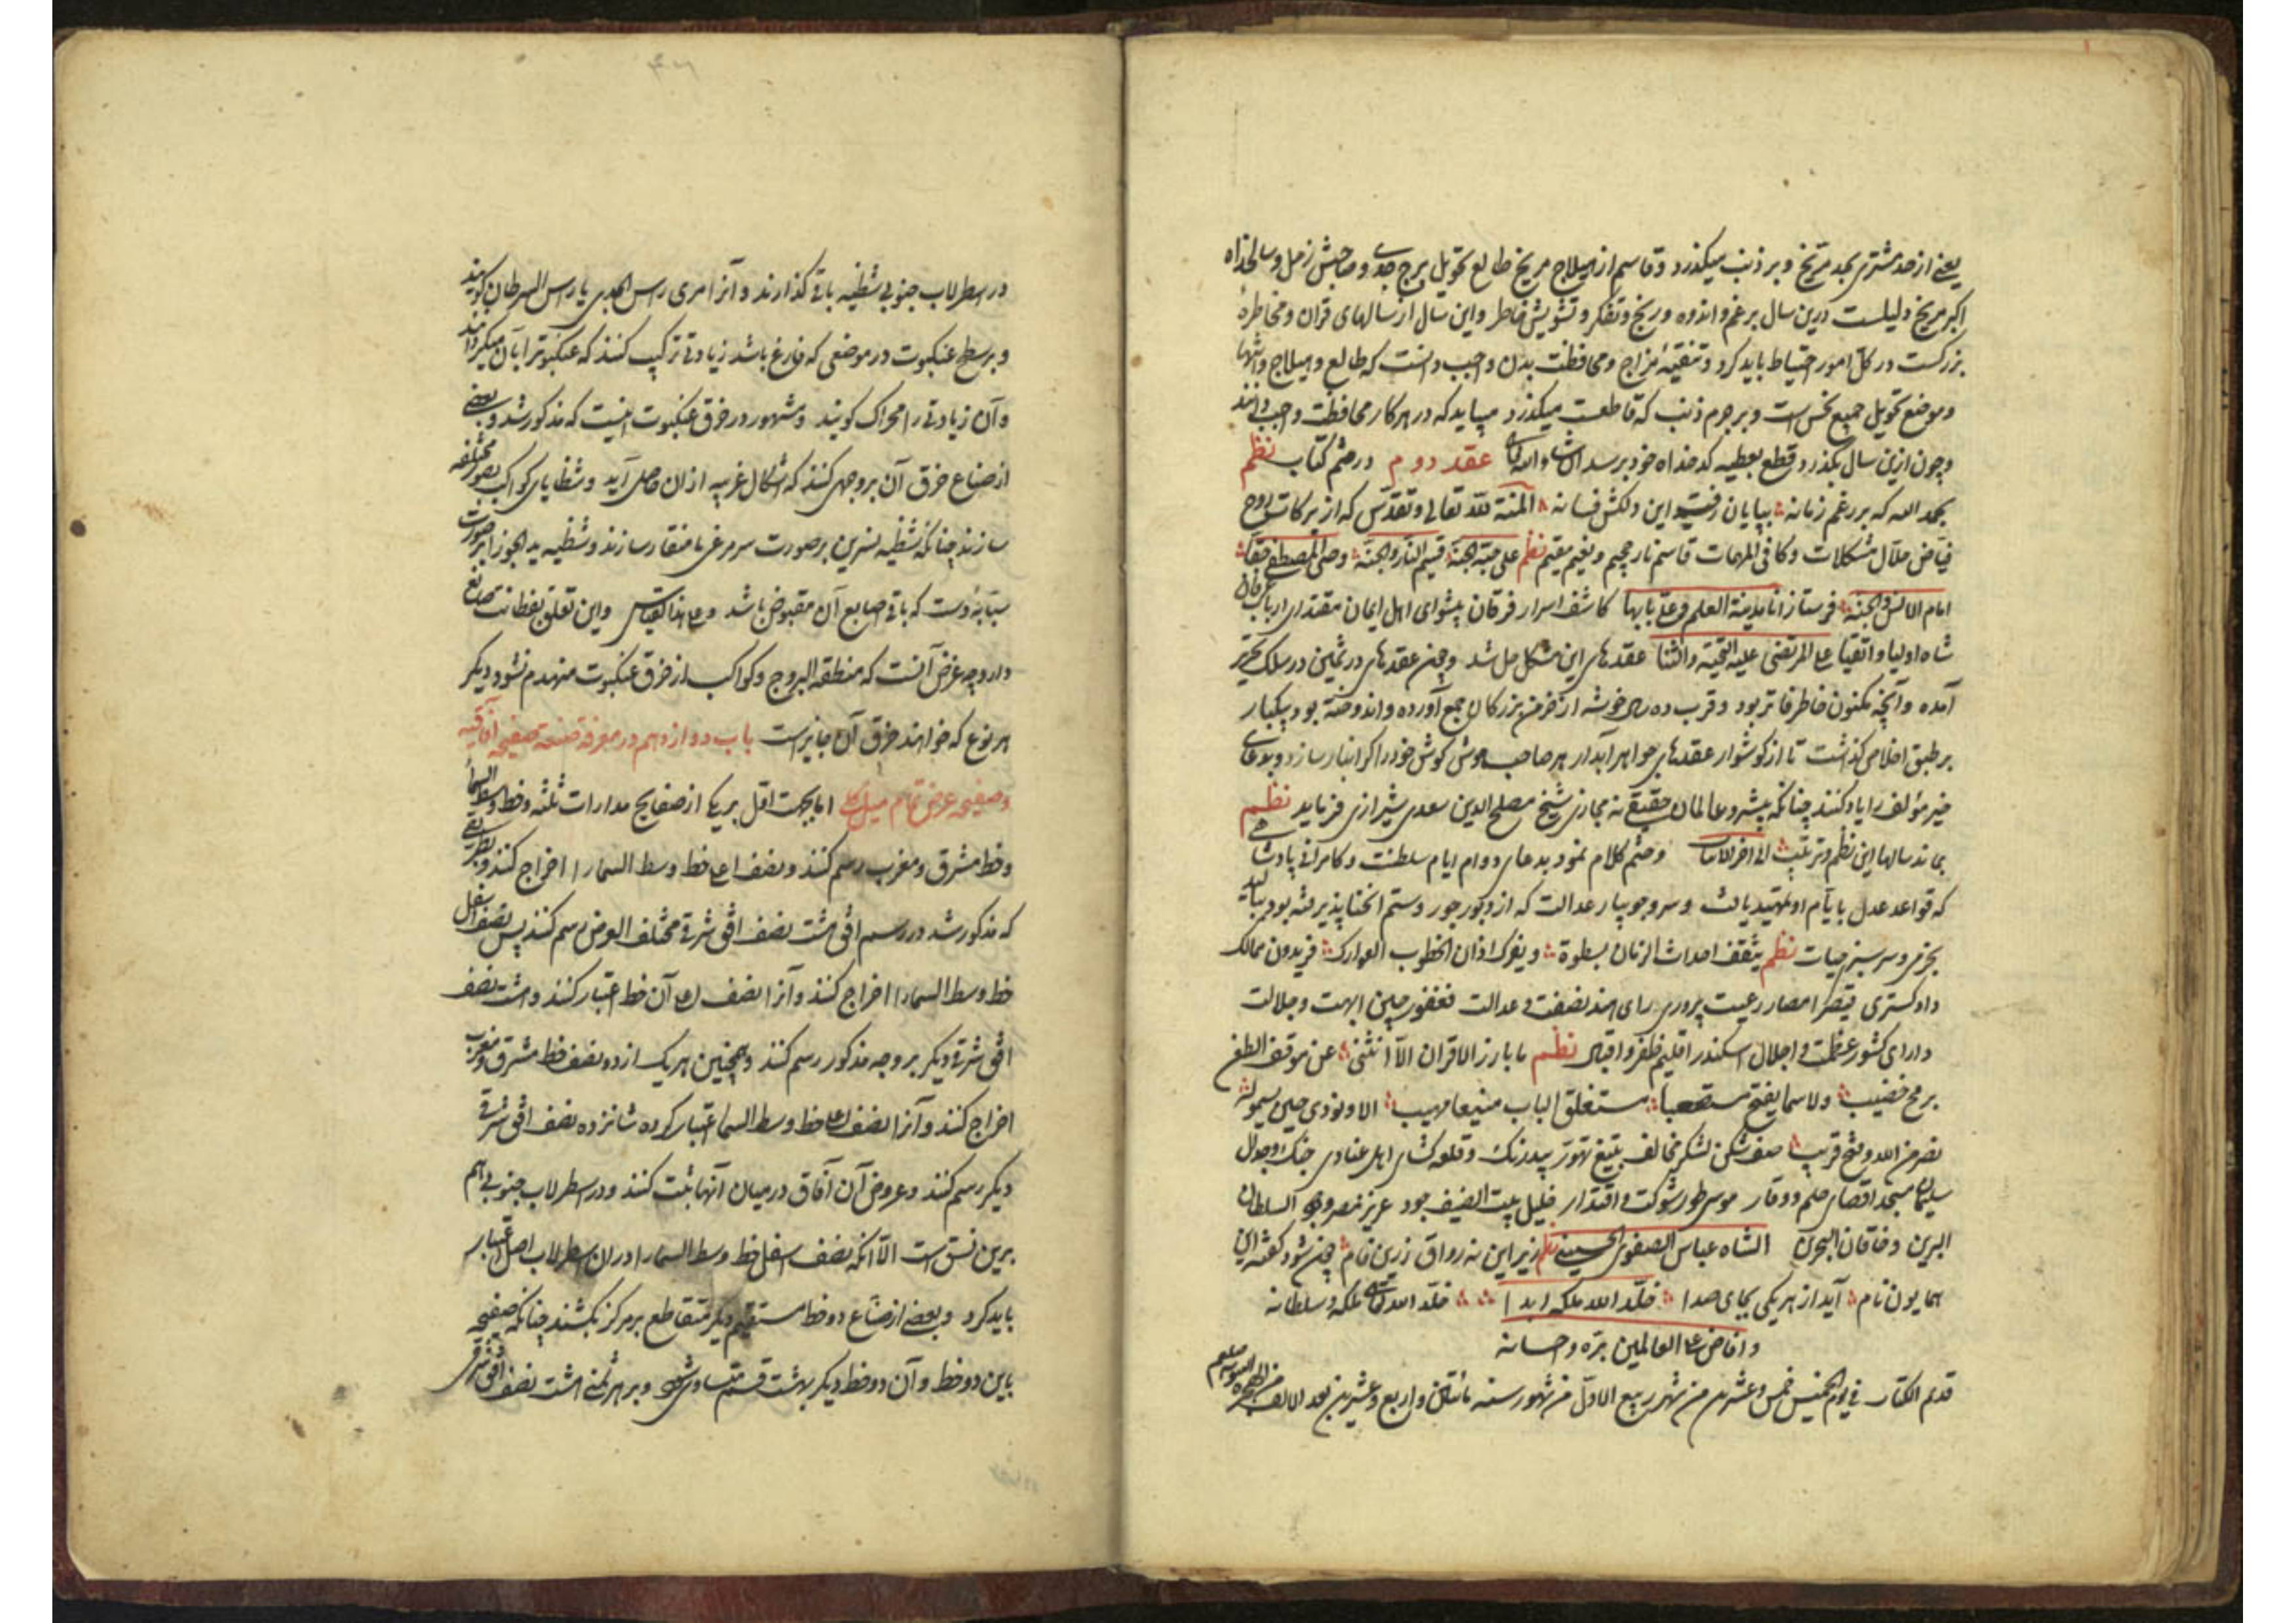 یعنی از حد مشتری بحد مریخ و بر ذنب میگذرد و قاسم از هیلاج مریخ طالع تحویل برج جدی و صاحبش زحل و سالخداه
اکبر مریخ دلیلست درین سال بر غم و اندوه و رنج و تفکر و تشویش خاطر و این سال از سالهای قران و مخاطرهٔ
بزرکست در کل امور احتیاط باید کرد و تنقیهٔ مزاج و محافظت بدن واجب دانست که طالع و هیلاج و انتها
و موضع تحویل جمیع نحس است و بر جرم ذنب که قاطعست میگذرد میباید که در هر کار محافظت واجب دانند
و چون ازین سال بگذرد قطع بعطیه کدخداه خود برسد ان شاء الله تعالی عقد دوم در ختم کتاب نظم
بحمد الله که بر رغم زمانه بپایان رفت این دلکش فسانه المنة لله تعالی و تقدس که از برکات روح
فیاض حلال مشکلات و کافی المهمات قاسم نار جحیم و نعیم مقیم نظم علی حبه جنة قسیم النار و الجنة وصی المصطفی حقا
امام الانس و الجنة فرستاز انا مدینة العلم و علی بابها کاشف اسرار فرقان پیشوای اهل ایمان مقتدای ارباب عرفان
شاه اولیا و اتقیا علی المرتضی علیه التحیة و الثنا عقدهای این مشکل حل شد و چون عقدهای در ثمین در سلک تحریر
آمده و آنچه مکنون خاطر فاتر بود و قرب ده سال خوشه از خرمن بزرکان جمع آورده و اندوخته بود بیکبار
بر طبق اخلاص گذاشت تا از گوشوار عقدهای جواهر آبدار هر صاحب هوش گوش خود را گرانبار سازد و بدعای
خیر مؤلف را یاد کنند چنانکه پیشرو عالمان حقیقی نه مجازی شیخ مصلح الدین سعدی شیرازی فرماید نظم
بماند سالها این نظم و ترتیب الی آخر الابیات و ختم کلام نمود بدعای دوام ایام سلطنت و کامرانی پادشاهی
که قواعد عدل بایام او تمهید یافت و سرو جویبار عدالت که از دبور جور و ستم انحنا پذیرفته بود
بخرمی و سرسبزی حیات نظم یثقف احداث الزمان بسطوة و یعرک اذان الخطوب العوارک فریدون ممالک
دادگستری قیصر امصار رعیت پروری رای هند نصفت و عدالت فغفور چین ابهت و جلالت
دارای کشور عظمت و اجلال اسکندر اقلیم ظفر و اقبال نظم ما بارز الاقران الا انثنی عن موقف الطعن
برمح خضیب ولا سما یفتح مستصعبا مستغلق الباب منیعا مهیب الا و نودی حین یسمو له
نصر من الله و فتح قریب صف شکن لشکر مخالف بتیغ تهور بیدرنگ و قلعه کشای اهل عناد در جنگ و جدال
سلیمان مسجد اقصای حلم و وقار موسی طور شوکت و اقتدار خلیل بیت الضیف جود عزیز مصر وجود السلطان
البرین و خاقان البحرین الشاه عباس الصفوی الحسینی نظم زیر این نه رواق زرین فام چون شود گفته این
همایون نام آید از هر یکی بجای صدا خلد الله ملکه ابدا خلد الله تعالی ملکه و سلطانه
و افاض علی العالمین بره و احسانه
قد تم الکتاب فی یوم الخمیس خمس و عشرین من شهر ربیع الاول من شهور سنه مائتان و اربع و عشرین بعد الالف من الهجرة
در اسطرلاب جنوبی شظیه باقی گذارند و آنرا مری راس الجدی یا راس السرطان گویند
و بر سطح عنکبوت در موضعی که فارغ باشد زیادتی ترکیب کنند که عنکبوت را بآن میگردانند
و آن زیادتی را محراک گویند و مشهور در خرق عنکبوت اینست که مذکور شد و بعضی
از صناع خرق آن بر وجهی کنند که اشکال غریبه از ان حاصل آید و شظایای کواکب بصور مختلفه
سازند چنانکه شظیه نسرین بر صورت سر مرغی با منقار سازند و شظیه ید الجوزا بر صورت
سبابهٔ دست که باقی اصابع آن مقبوض باشد و علی هذا القیاس و این تعلق بفطانت صانع
دارد چه غرض آنست که منطقة البروج و کواکب از خرق عنکبوت منهدم نشود دیگر
هر نوع که خواهند خرق آن جایز است باب دوازدهم در معرفة صنعة صفیحه آفاقیه
و صفیحه عرض تمام میل کلی اما بجهت اول بر یکی از صفایح مدارات ثلثه و خط وسط السما
و خط مشرق و مغرب رسم کنند و نصف اعلی خط وسط السما را اخراج کنند و بطریقی
که مذکور شد در رسم افق هشت نصف افق شرقی مختلف العرض رسم کنند پس نصف اسفل
خط وسط السما را اخراج کنند و آنرا نصف اعلی آن خط اعتبار کنند و هشت نصف
افق شرقی دیگر بر وجه مذکور رسم کنند و همچنین هر یک از دو نصف خط مشرق و مغرب
اخراج کنند و آنرا نصف اعلی خط وسط السما اعتبار کرده شانزده نصف افق شرقی
دیگر رسم کنند و عروض آن آفاق در میان آنها ثبت کنند و در اسطرلاب جنوبی هم
برین نسق است الا آنکه نصف اسفل خط وسط السما را در ان اسطرلاب اصل اعتبار
باید کرد و بعضی از صناع دو خط مستقیم دیگر متقاطع بر مرکز بکشند چنانکه صفیحه
باین دو خط و آن دو خط دیگر بهشت قسم متساوی شود و بر هر ثمنی هشت نصف افق شرقی